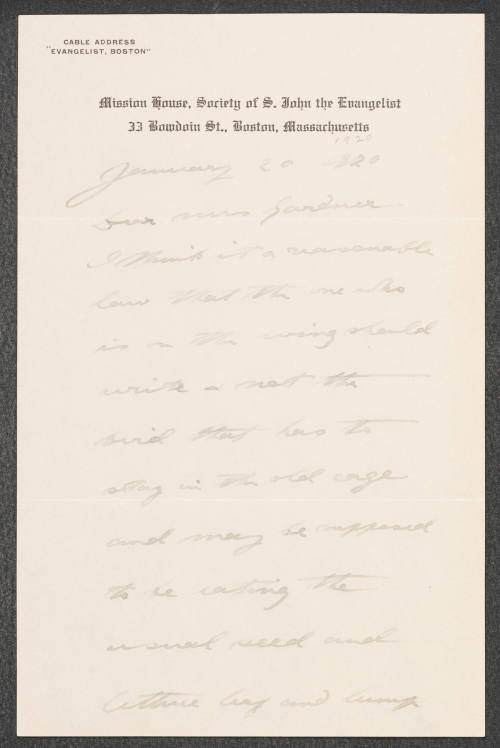 CABLE ADDRESS
"EVANGELIST, BOSTON"
Mission House, Society of S. John the Evangelist
33 Bowdoin St., Boston, Massachusetts
1920
January 20 1920
Dear Mrs Gardner
I think it a reasonable
law that the one who
is on the wing should
write & not the
bird that has to
stay in the old cage
and may be supposed
to be eating the
usual seed and
lettuce leaf and lump